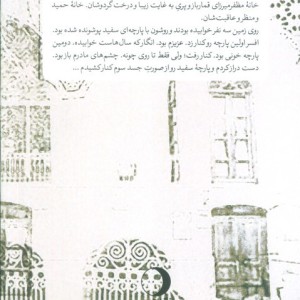 خانهٔ مظفرمیرزای قمارباز و پری به غایت زیبا و درخت گردوشان. خانهٔ حمید
و منظر و عاقبت‌شان.
روی زمین سه نفر خوابیده بودند و روشون با پارچه‌ای سفید پوشونده شده بود.
افسر اولین پارچه رو کنار زد. عزیزم بود. انگار که سال‌هاست خوابیده. دومین
پارچه خونی بود. کنار رفت؛ ولی فقط تا روی چونه. چشم‌های مادرم باز بود.
دست دراز کردم و پارچهٔ سفید رو از صورتِ جسد سوم کنار کشیدم ...